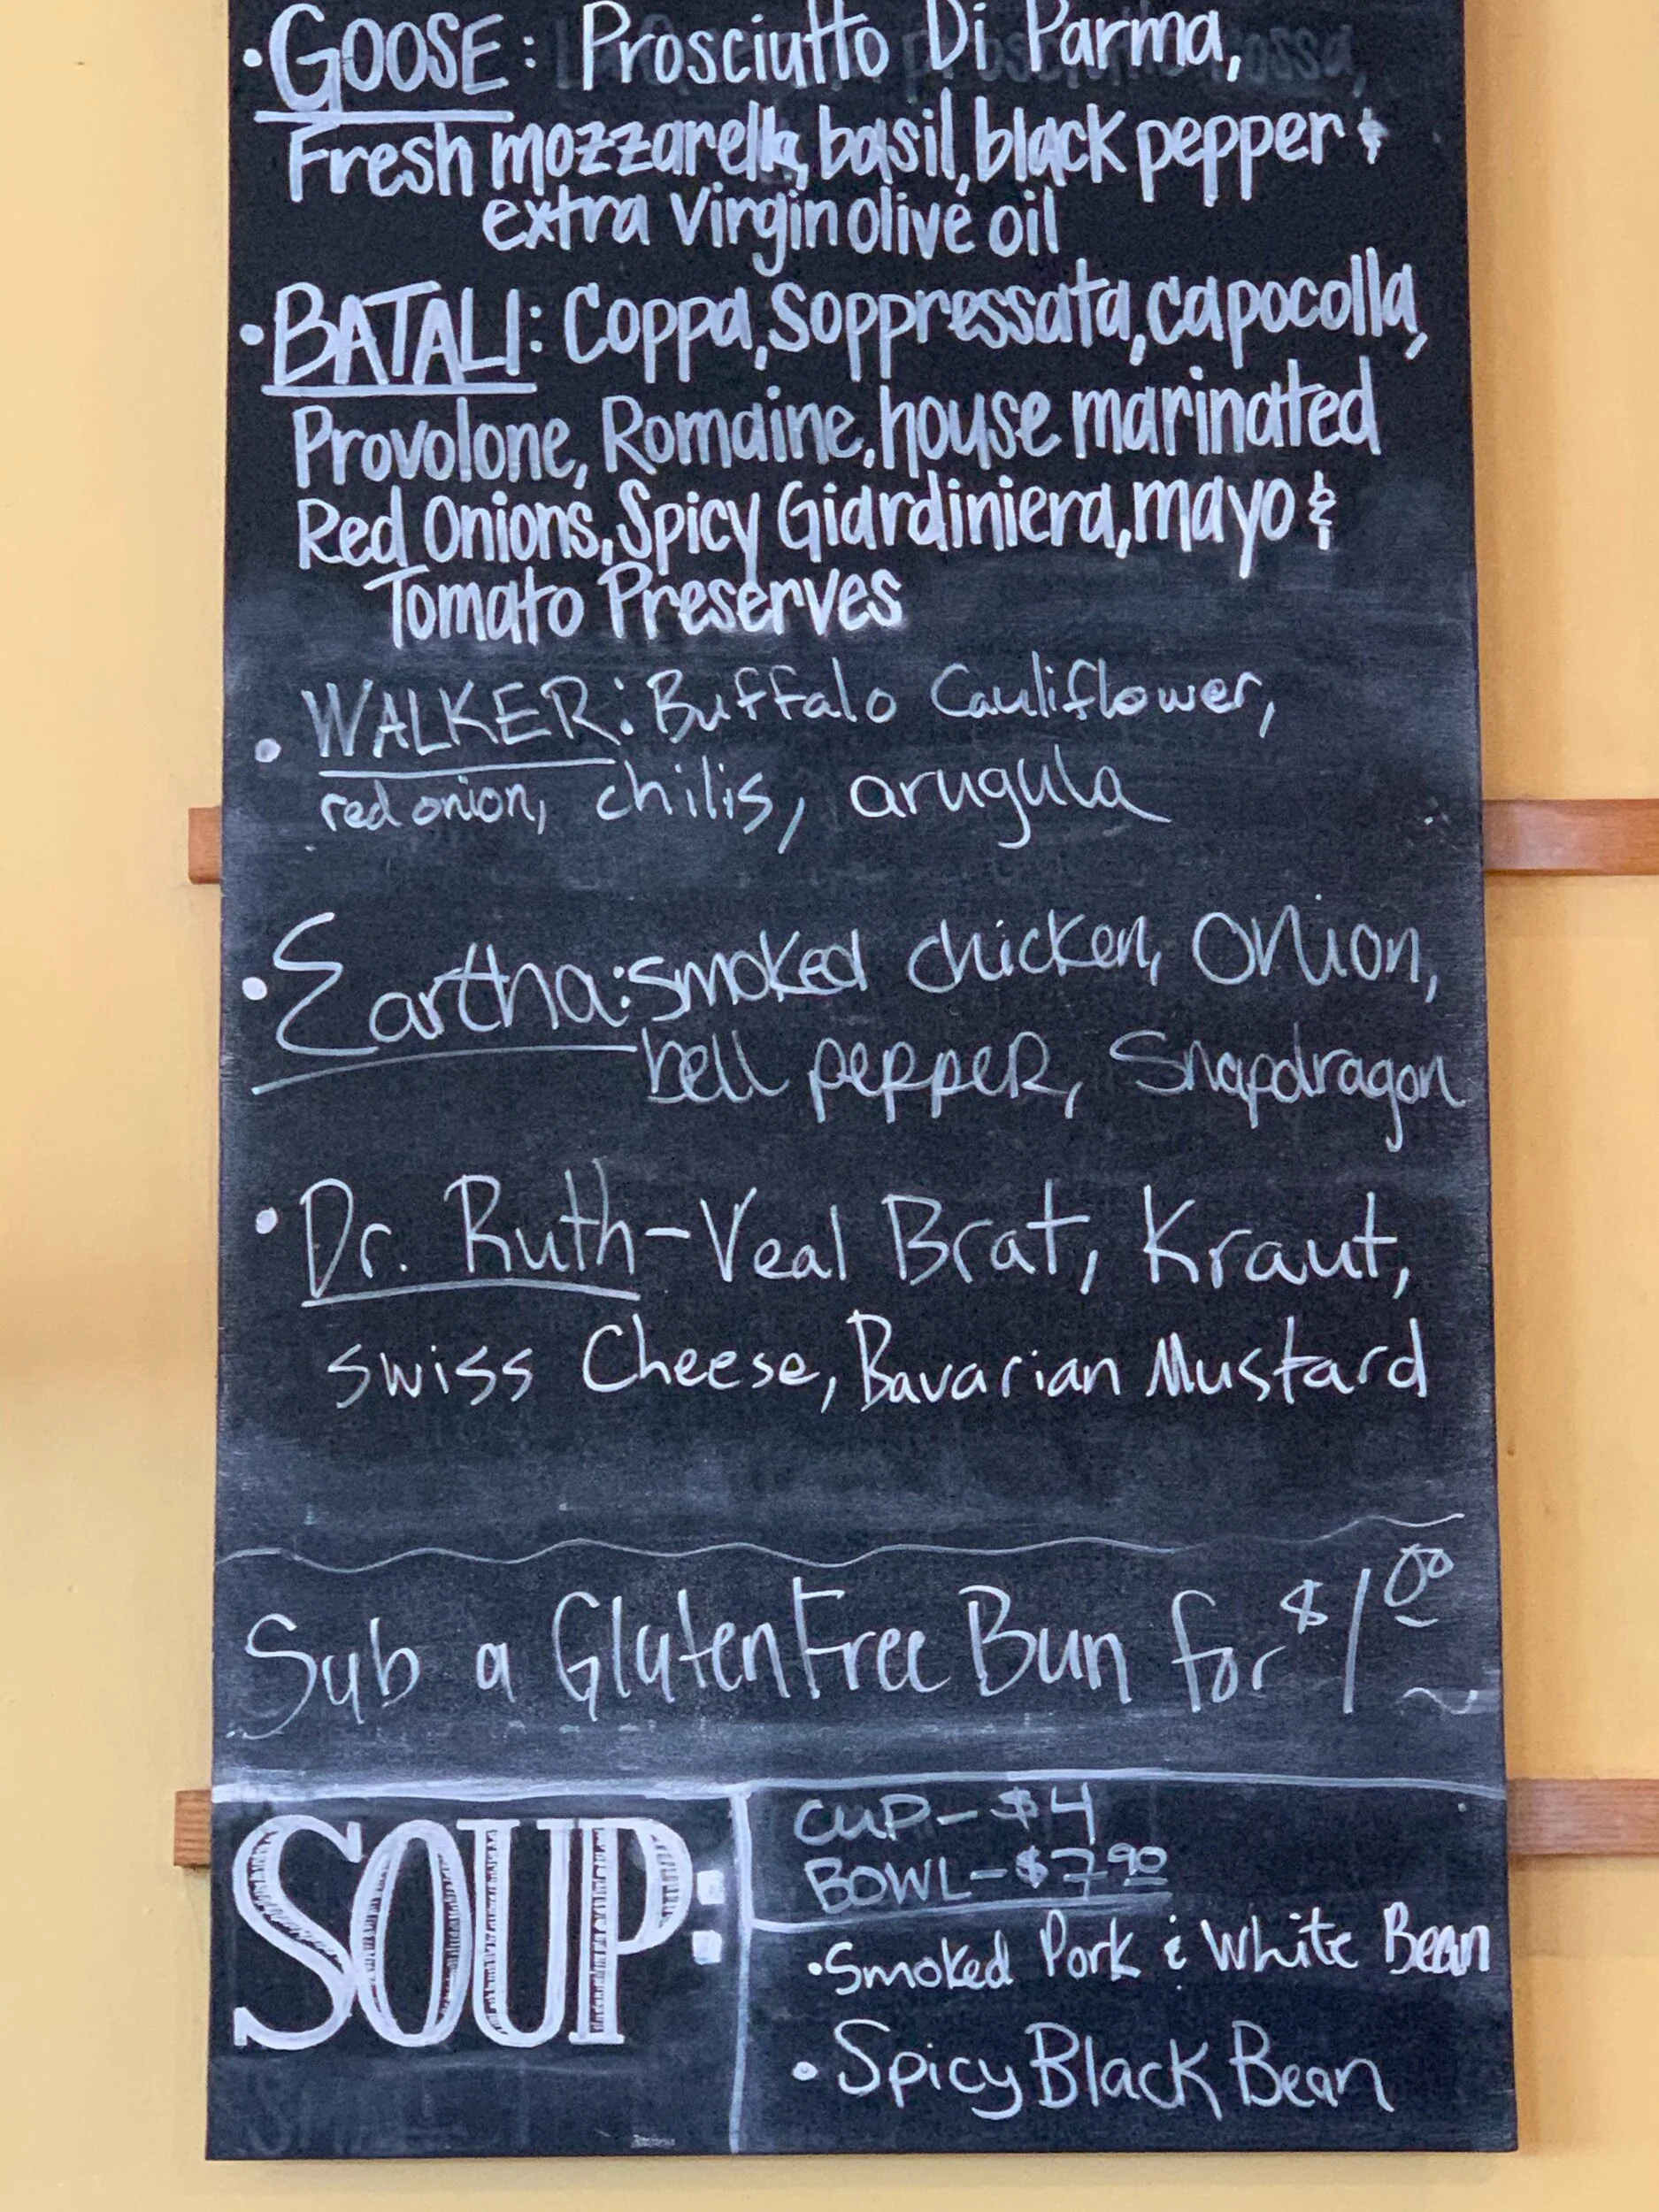 • GOOSE: Prosciutto Di Parma,
Fresh mozzarella, basil, black pepper &
extra virgin olive oil
• BATALI: Coppa, Soppressata, capocolla,
Provolone, Romaine, house marinated
Red Onions, Spicy Giardiniera, mayo &
Tomato Preserves
• WALKER: Buffalo Cauliflower,
red onion, chilis, arugula
• Eartha: smoked chicken, onion,
bell pepper, Snapdragon
• Dr. Ruth - Veal Brat, Kraut,
swiss Cheese, Bavarian Mustard
Sub a Gluten Free Bun for $1.00
SOUP:
CUP - $4
BOWL - $7.90
• Smoked Pork & White Bean
• Spicy Black Bean